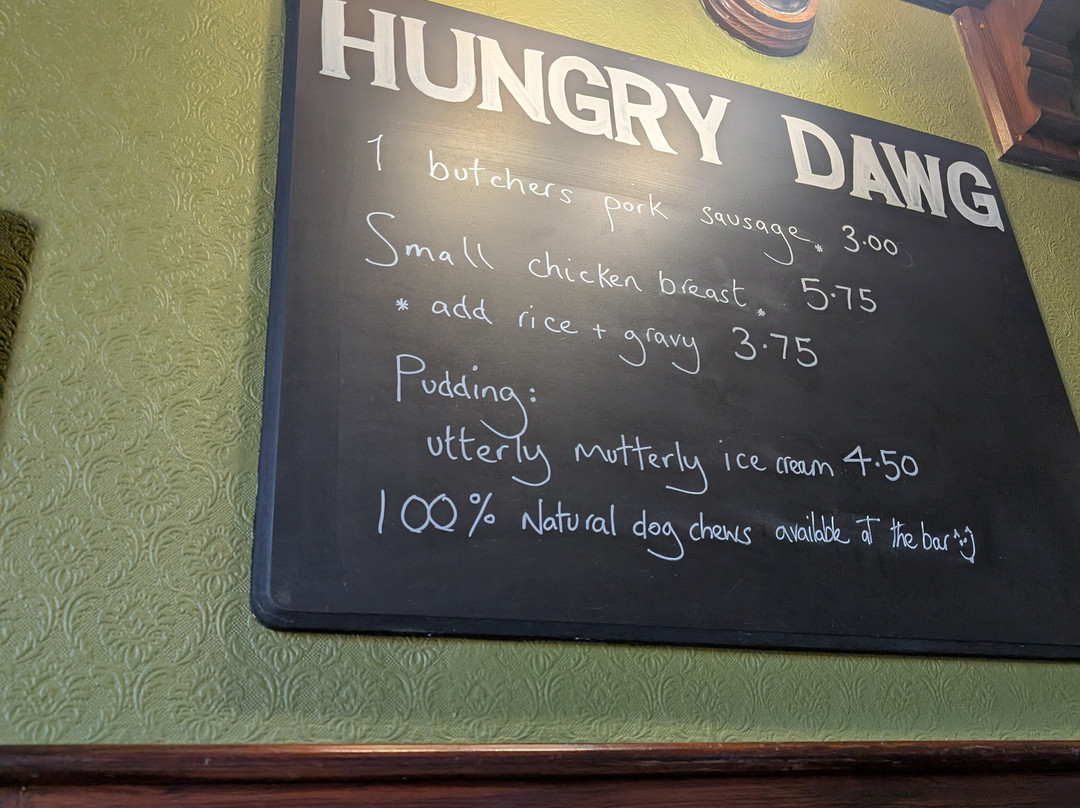 HUNGRY DAWG
1 butchers pork sausage * 3.00
Small chicken breast * 5.75
* add rice + gravy 3.75
Pudding:
utterly mutterly ice cream 4.50
100% Natural dog chews available at the bar :)